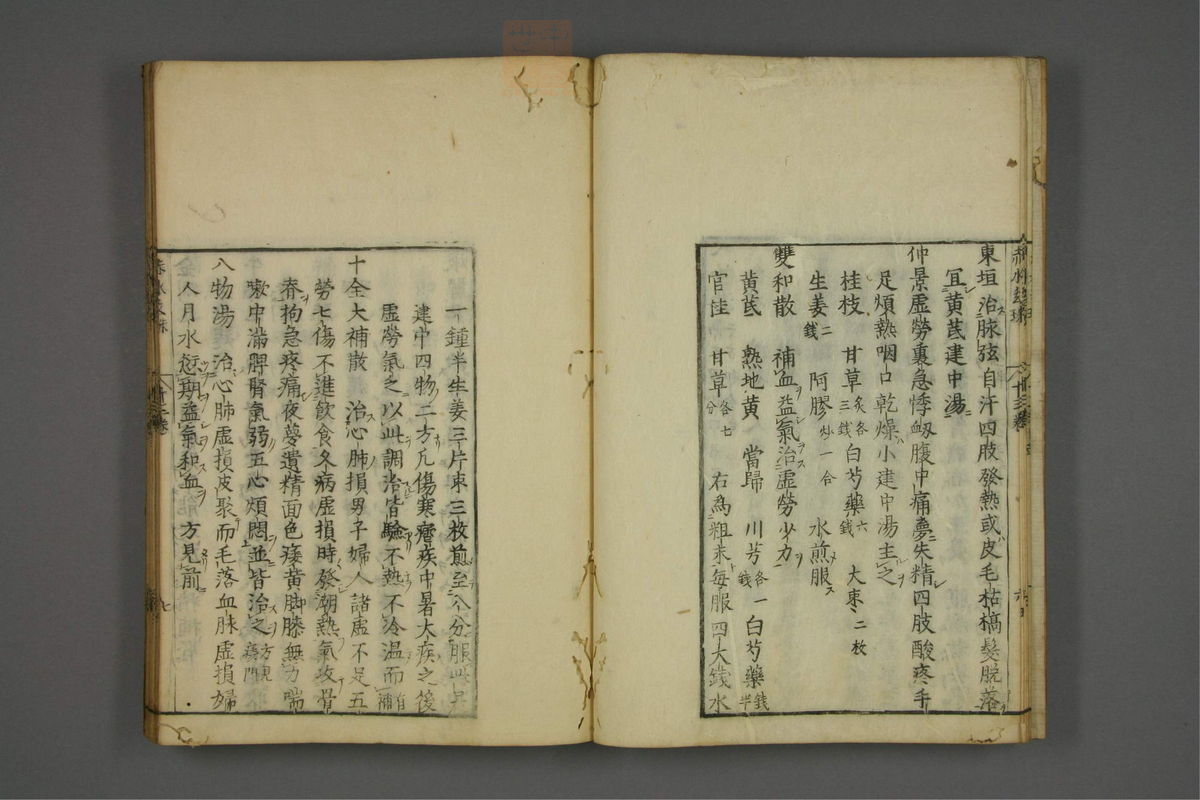 東垣 治脉弦自汗四肢發熱或皮毛枯槁髮脱落
冝黄芪建中湯
仲景虚勞裏急悸衂腹中痛夢失精四肢酸疼手
足煩熱咽口乾燥小建中湯主之
桂枝 甘草炙各三錢 白芍藥六錢 大棗二枚
生姜二錢 阿膠炒一合 水煎服
雙和散 補血益氣治虚勞少力
黄芪 熟地黄 當歸 川芎各一錢 白芍藥錢半
官桂 甘草各七分 右為粗末毎服四大錢水
一鍾半生姜三片棗三枚煎至八分服此是
建中四物二方凡傷寒瘡疾中暑大疾之後
虚勞氣乏以此調治皆驗不熱不冷温而自補
十全大補散 治心肺損男子婦人諸虚不足五
勞七傷不進飲食久病虚損時發潮熱氣攻骨
脊拘急疼痛夜夢遺精面色痿黄脚膝無力喘
嗽中滿脾腎氣弱五心煩悶並皆治之方見
八物湯 治心肺虚損皮聚而毛落血脉虚損婦
人月水愆期益氣和血 方見前